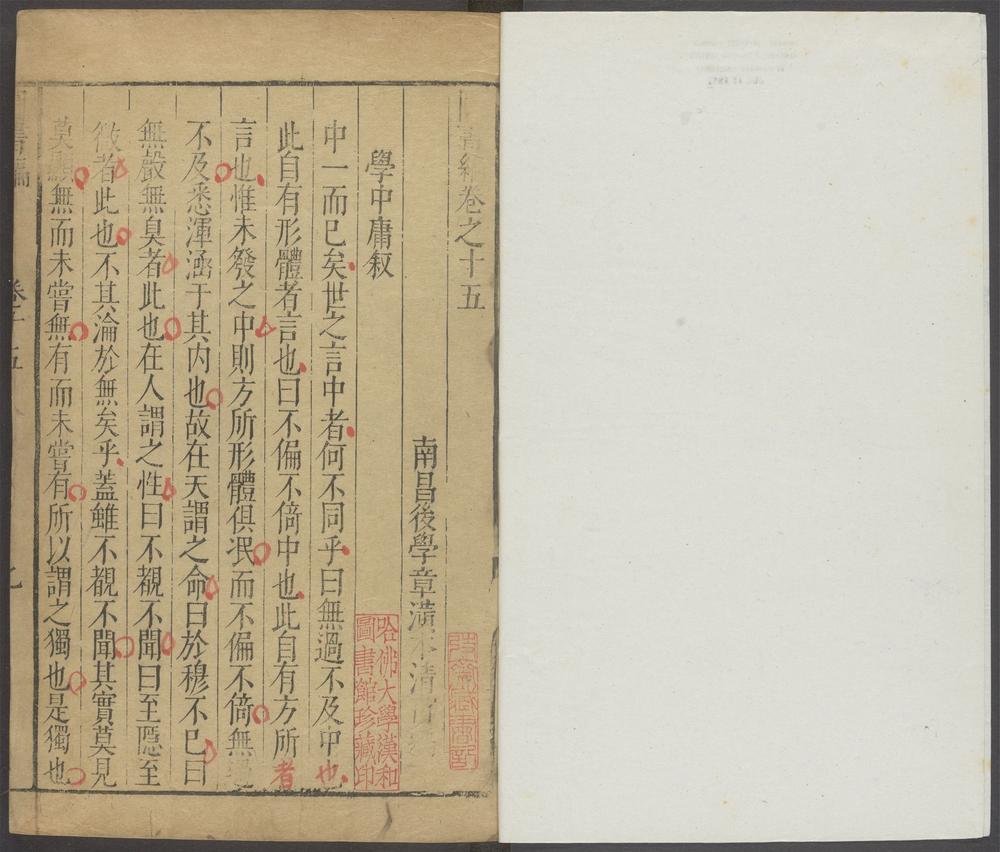 圖書編卷之十五
南昌後學章潢本清
學中庸叙
中一而已矣世之言中者何不同乎曰無過不及中也
此自有形體者言也曰不偏不倚中也此自有方所者
言也惟未發之中則方所形體俱泯而不偏不倚無過
不及悉渾涵于其内也故在天謂之命曰於穆不已曰
無聲無臭者此也在人謂之性曰不覩不聞曰至隱至
微者此也不其淪於無矣乎蓋雖不覩不聞其實莫見
莫顯無而未嘗無有而未嘗有所以謂之獨也是獨也
圖書編
卷十五
哈佛大學漢和
圖書館珍藏印